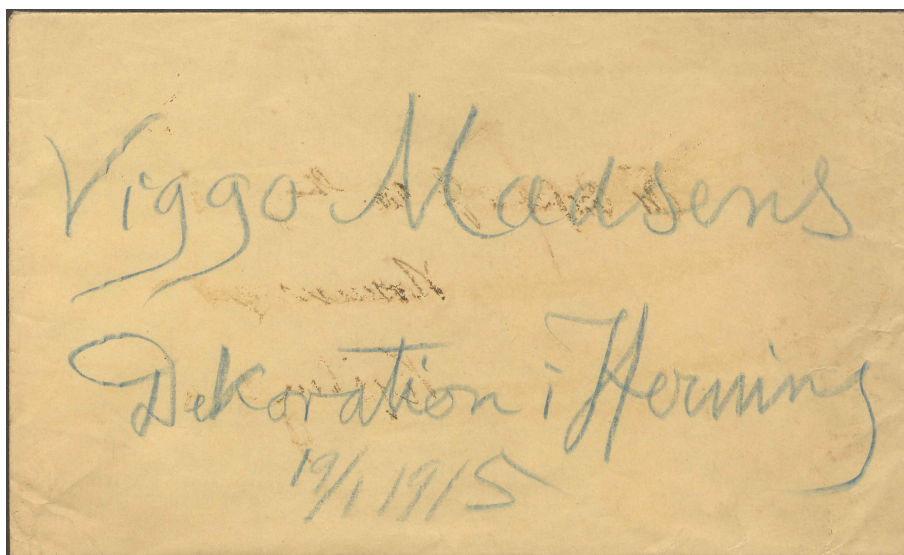 Viggo Madsens
Dekoration i Herning
19/1 1915